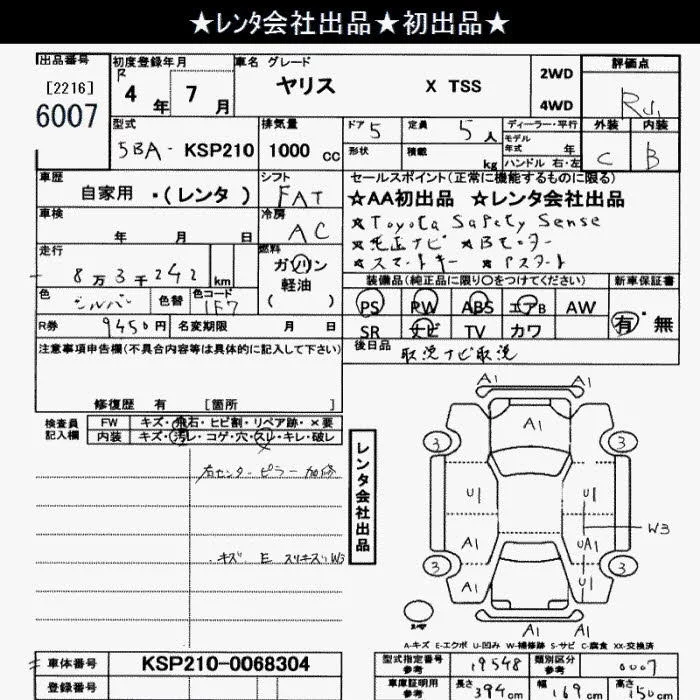 ★レンタ会社出品★初出品★
出品番号 初度登録年月 車名 グレード 2WD 評価点
[2216] R 4 年 7 月 ヤリス X TSS 4WD
6007
型式 排気量 ドア 5 定員 5 人 ディーラー・平行 外装 内装
5BA- KSP210 1000 cc 形状 積載 kg モデル年式 年 C B
ハンドル 右・左
車歴 シフト セールスポイント(正常に機能するものに限る)
自家用 ・(レンタ) FAT ☆AA初出品 ☆レンタ会社出品
車検 冷房 ☆Toyota Safety Sense
年 月 日 AC ☆純正ナビ ☆Bモニター
走行 燃料 ☆スマートキー ☆Pスタート
8万3千242 km ガソリン
軽油
( )
装備品(純正品に限り○をつけてください) 新車保証書
色 シルバー 色替 色コード 1F7 PS PW ABS エアB AW 有・無
R券 9450円 名変期限 月 日 SR ナビ TV カワ
注意事項申告欄(不具合内容等は具体的に記入して下さい) 後日品 取説ナビ取説
修復歴 有 [箇所 ]
検査員記入欄 FW キズ・飛石・ヒビ割・リペア跡・×要
内装 キズ・汚レ・コゲ・穴・スレ・キレ・破レ
右センターピラー加修
キズ E スリキズ W3
レンタ会社出品
A1 A1
A1
3 3
U1 U1
W3
A1 UA1
3 3
A1 A1
A1
A1 A1
A-キズ E-エクボ U-凹み W-補修跡 S-サビ C-腐食 XX-交換済
車体番号 KSP210-0068304 型式指定番号 参考 19548 類別区分 参考 0007
登録番号 車庫証明用 参考 長さ 394 cm 幅 169 cm 高さ 150 cm